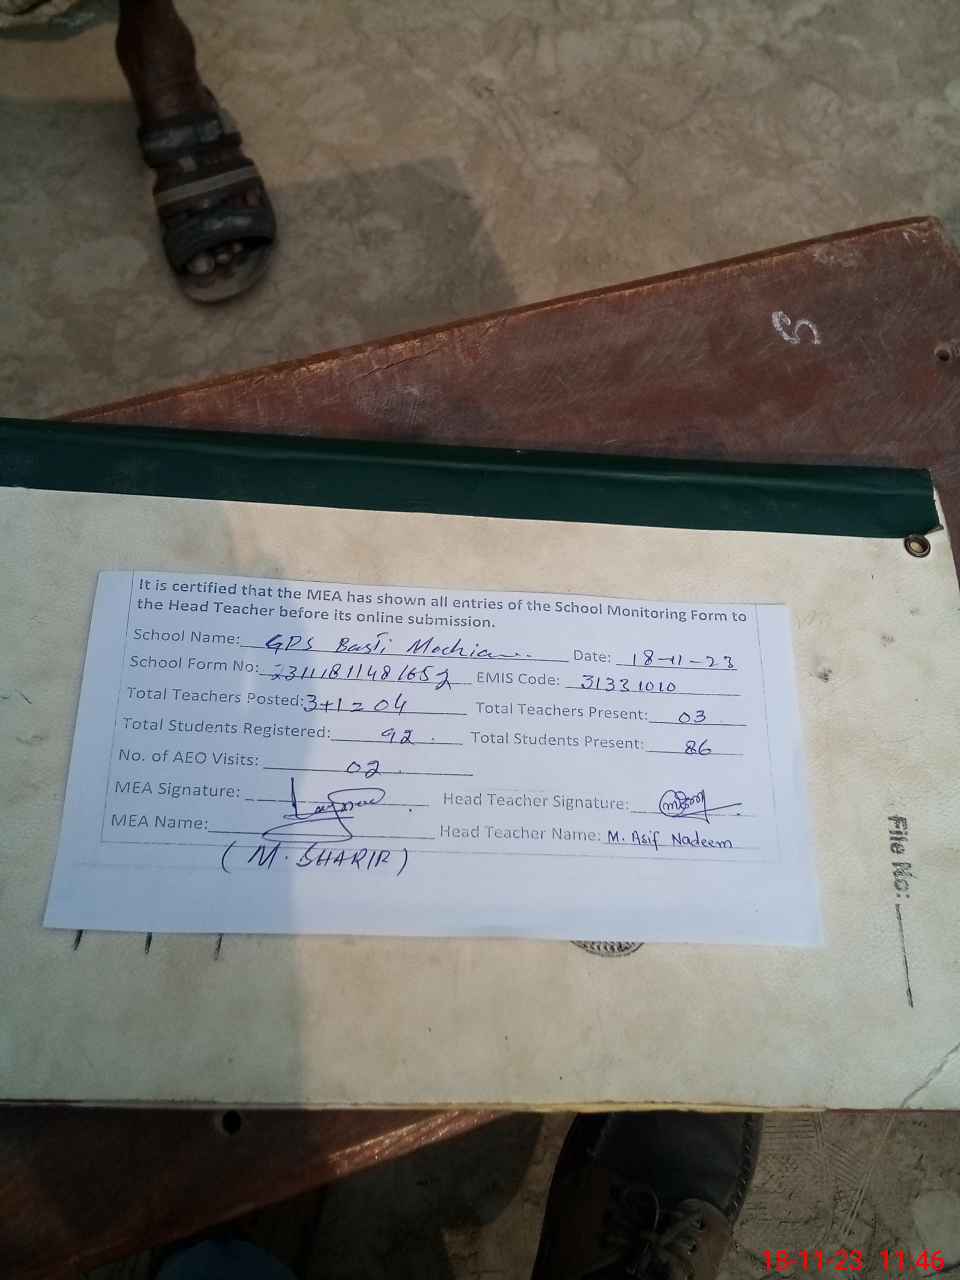 It is certified that the MEA has shown all entries of the School Monitoring Form to
the Head Teacher before its online submission.
School Name: GPS Basti Mochian Date: 18-11-23
School Form No: 23111811481652 EMIS Code: 31331010
Total Teachers Posted: 3+1=04 Total Teachers Present: 03
Total Students Registered: 92 Total Students Present: 86
No. of AEO Visits: 02
MEA Signature: Head Teacher Signature:
MEA Name: Head Teacher Name: M. Asif Nadeem
(M. SHARIF)
File No:
S
18-11-23 11:46